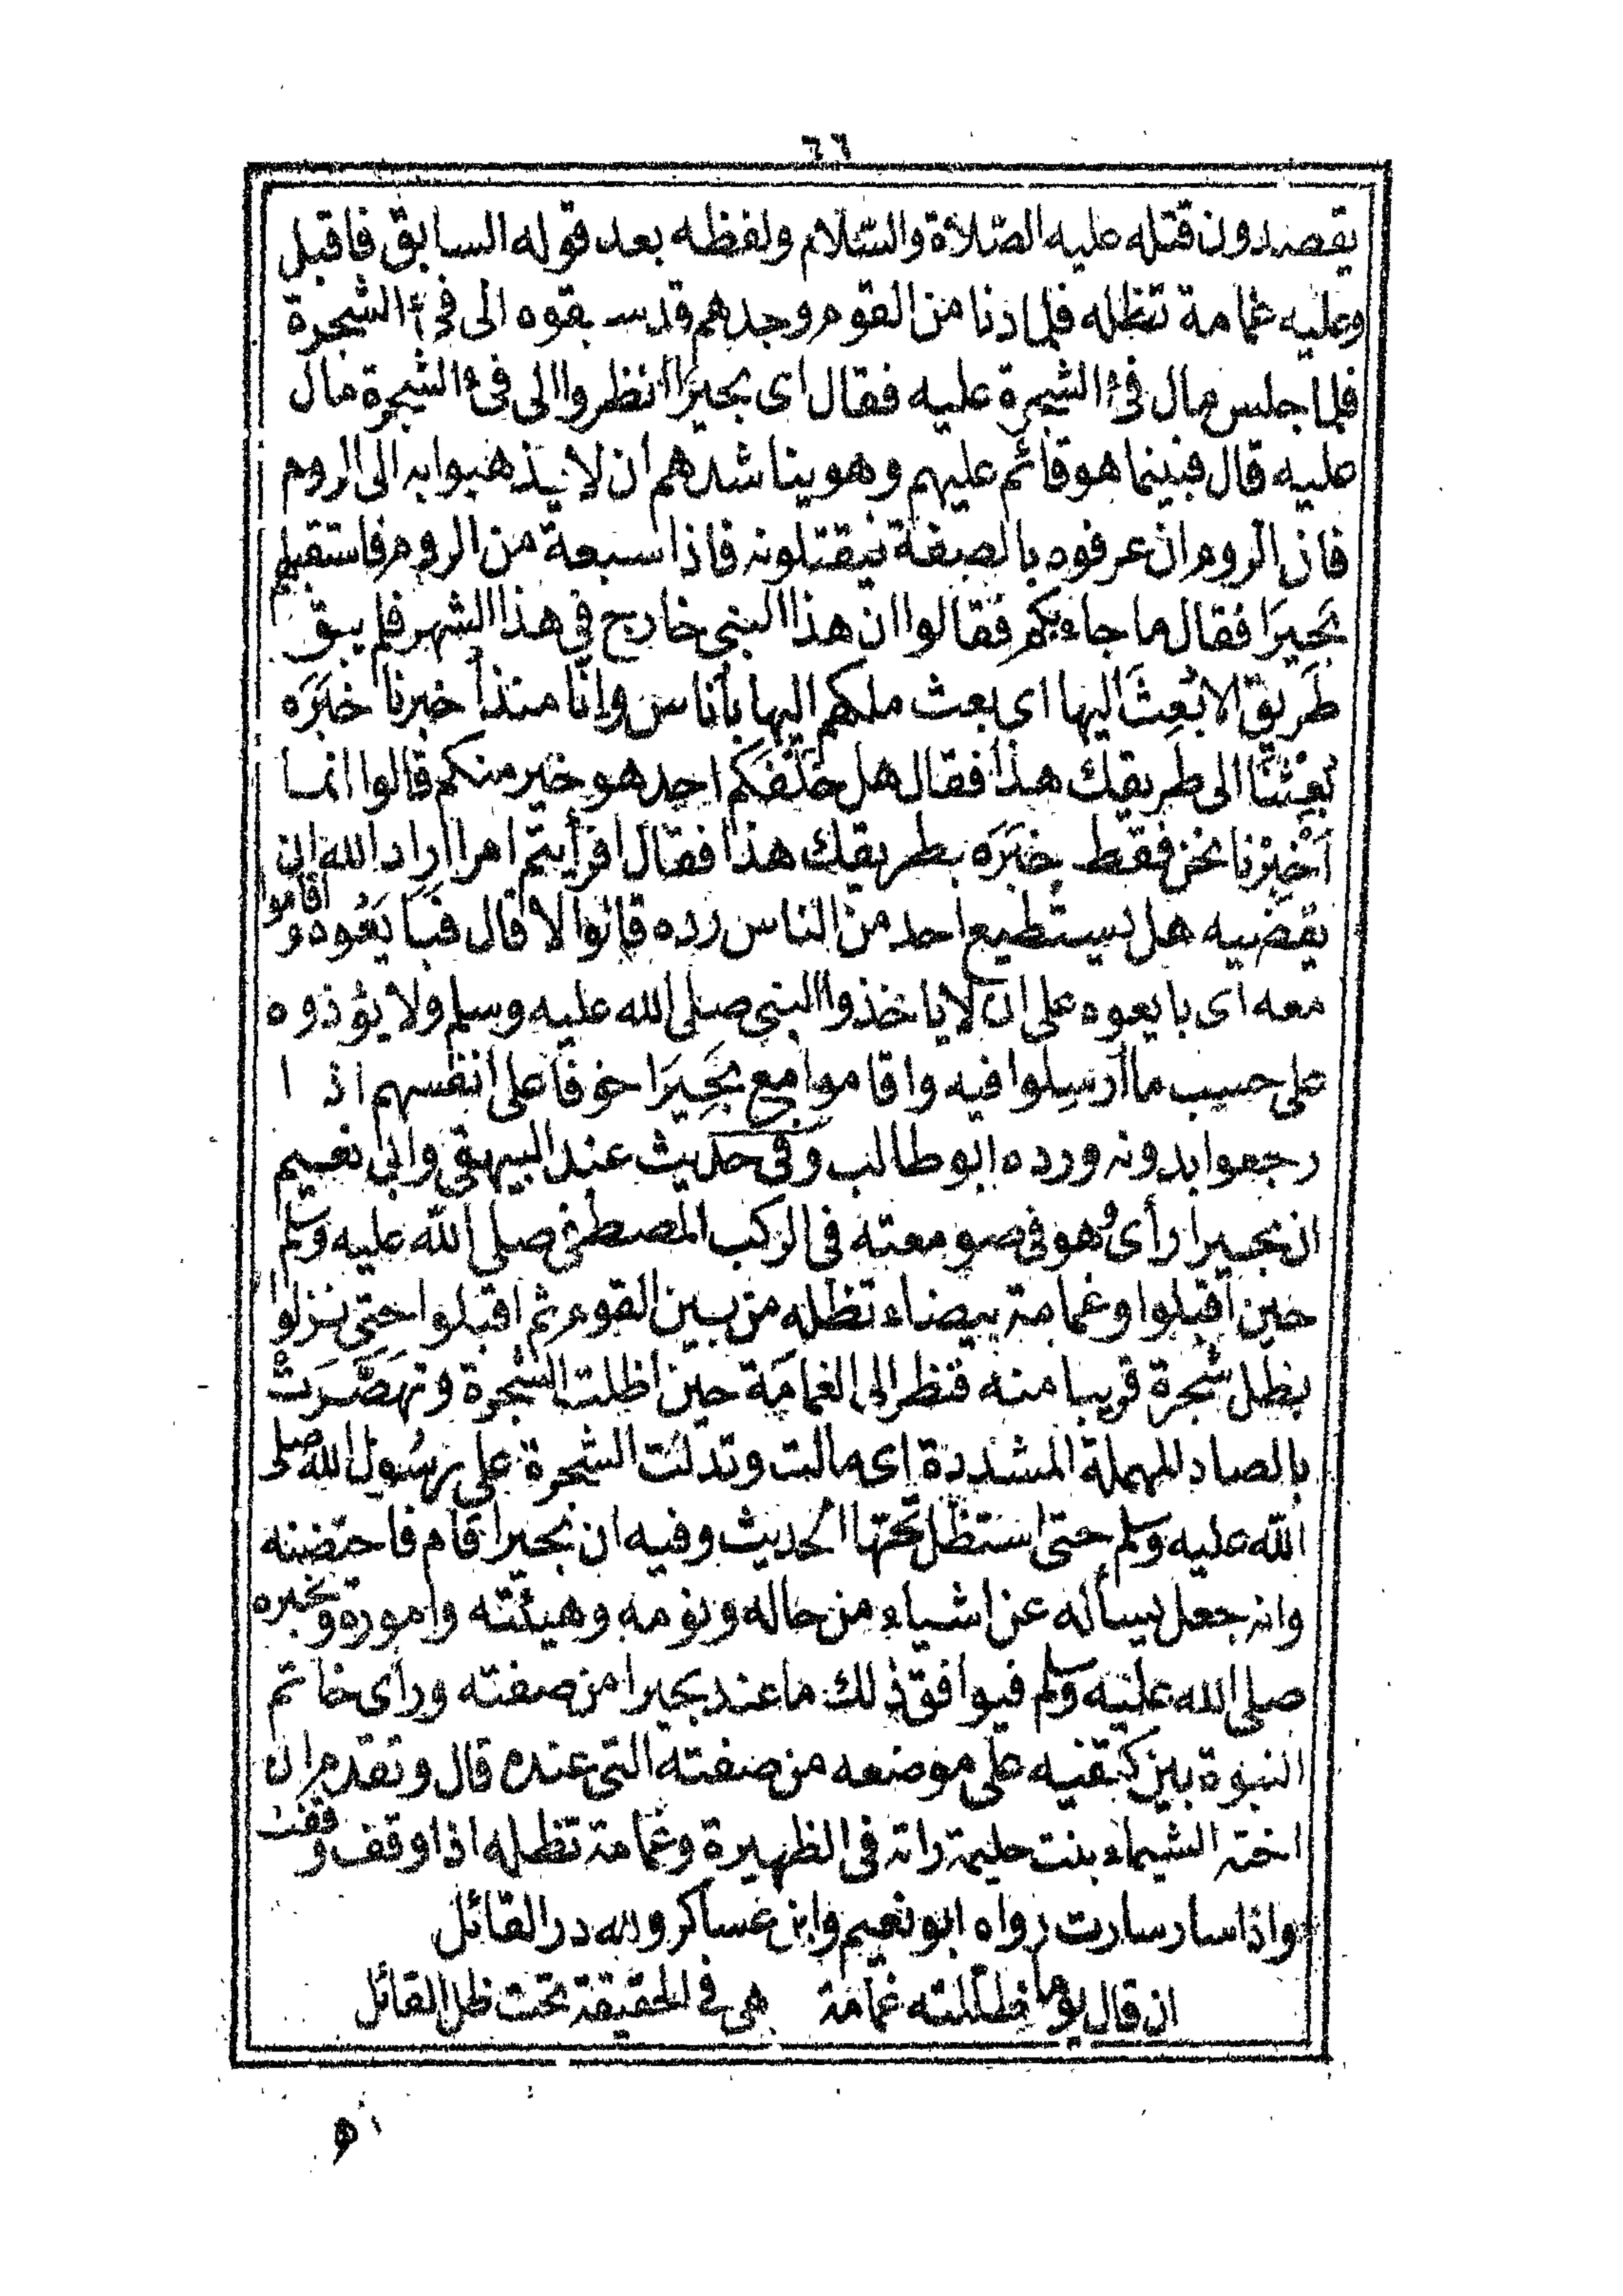 ٦٦
يقصدون قتله عليه الصّلاة والسّلام ولفظه بعد قوله السابق فاقبل
وعليه غمامة تظله فلما دنا من القوم وجدهم قد سبقوه الى فئ الشجرة
فلما جلس مال فئ الشجرة عليه فقال اى بحيرَا انظروا الى فئ الشجرة مال
عليه قال فبينما هو قائم عليهم وهو يناشدهم ان لا يذهبوا به الى الروم
فان الروم ان عرفوه بالصفة فيقتلونه فاذا سبعة من الروم فاستقبلهم
بَحيرَا فقال ما جاء بكم فقالوا ان هذا النبى خارج في هذا الشهر فلم يبق
طَريق الا بُعِثَ اليها اى بعث ملكهم اليها بأناس وانّا منذ أخبرنا خبَرَه
بُعِثنَا الى طريقك هذا فقال هل خَلْفَكم احد هو خير منكم قالوا انما
اُخْبِرْنا نحن فقط خبَرَه بطريقك هذا فقال افرأيتم امرا اراد الله ان
يقضيه هل يستطيع احد من الناس رده قالوا لا قال فبَايَعُوه واقاموا
معه اى بايعوه على ان لا ياخذوا النبى صلى الله عليه وسلم ولا يؤذوه
على حسب ما أرسِلوا فيه واقاموا مع بَحِيرَا خوفا على انفسهم اذا
رجعوا بدونه ورده ابو طالب وفى حديث عند البيهقى وابى نعيم
ان بحيرا رأى وهو فى صومعته فى الركب المصطفى صلى الله عليه وسلم
حين اقبلوا وغمامة بيضاء تظله من بين القوم ثم اقبلوا حتى نزلوا
بظل شجرة قريبا منه فنظر الى الغمامَة حين اظلت الشجرة وتهَصَّرَت
بالصاد المهملة المشددة اى مالت وتدلت الشجرة على رسُول الله صلى
الله عليه وسلم حتى استظل تحتها الحديث وفيه ان بحيرا قام فاحتضنه
وانه جعل يسأله عن اشياء من حاله ونومه وهيئته واموره ويخبره
صلى الله عليه وسلم فيوافق ذلك ما عند بحيرا من صفته ورأى خاتم
النبوة بين كتفيه على موضعه من صفته التى عنده قال وتقدم ان
اخته الشيماء بنت حليمة راته فى الظهيرة وغمامة تظله اذا وقف وقفت
واذا سار سارت رواه ابو نعيم وابن عساكر ولله در القائل
ان قال يوما ظللته غمامة هى فى الحقيقة تحت ظل القائل